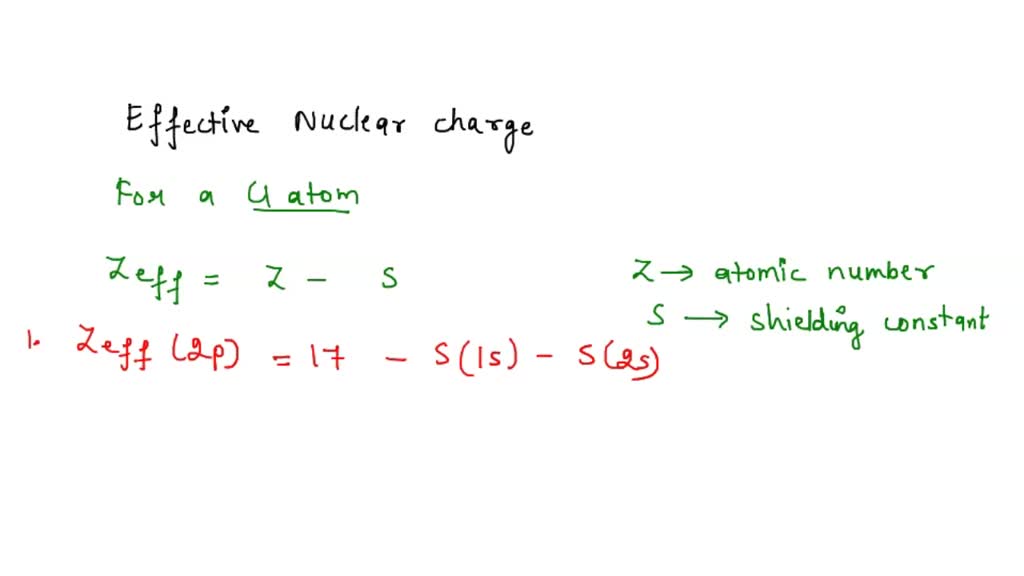 Effective Nuclear charge
For a Cl atom
Zeff = Z - S
Z → atomic number
S → shielding constant
1. Zeff (2p) = 17 - S(1s) - S(2s)